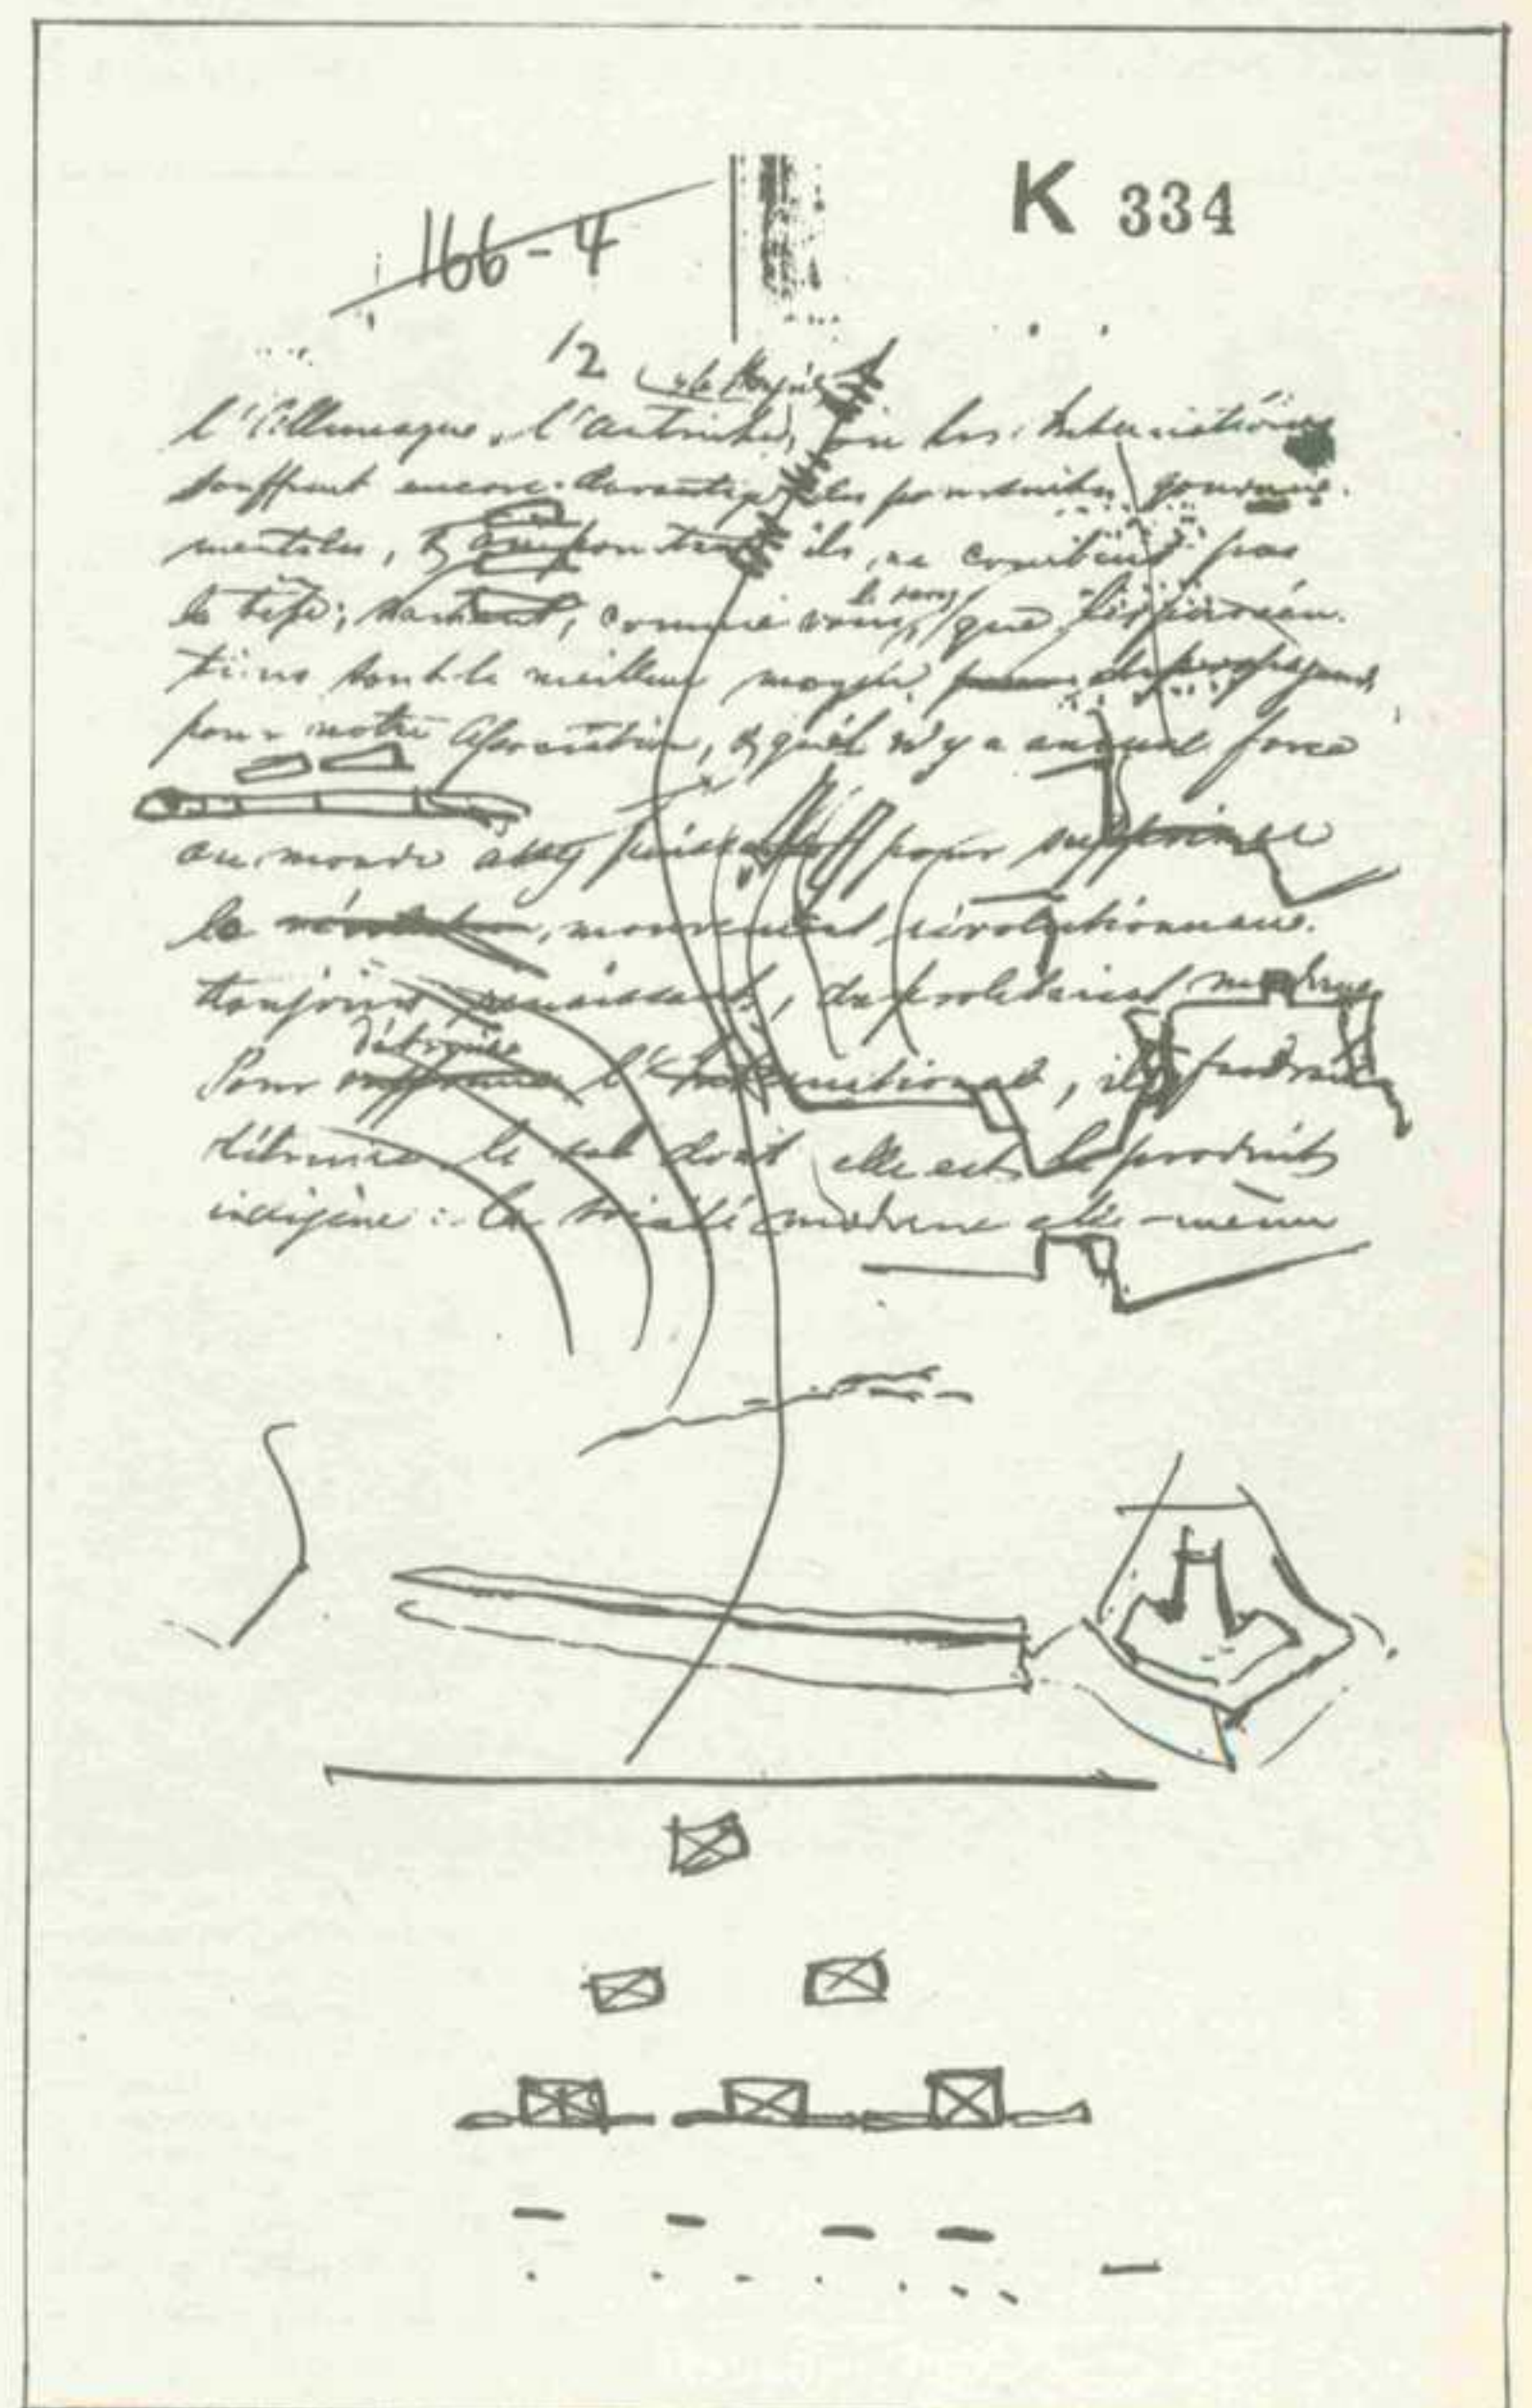 K 334
166-4
12
l'Allemagne, l'Autriche, où les Internationaux
souffrent encore davantage des poursuites gouverne-
mentales, & pourtant ils ne courbent pas
la tête; sachant, comme vous, que les persécu-
tions sont le meilleur moyen
pour notre Association, & qu'il n'y a aucune force
au monde assez puissante pour supprimer
le mouvement révolutionnaire
toujours renaissant, du prolétariat moderne
détruire
Pour l'Internationale, il faudrait
détruire le sol dont elle est le produit
indigène: la société moderne elle-même